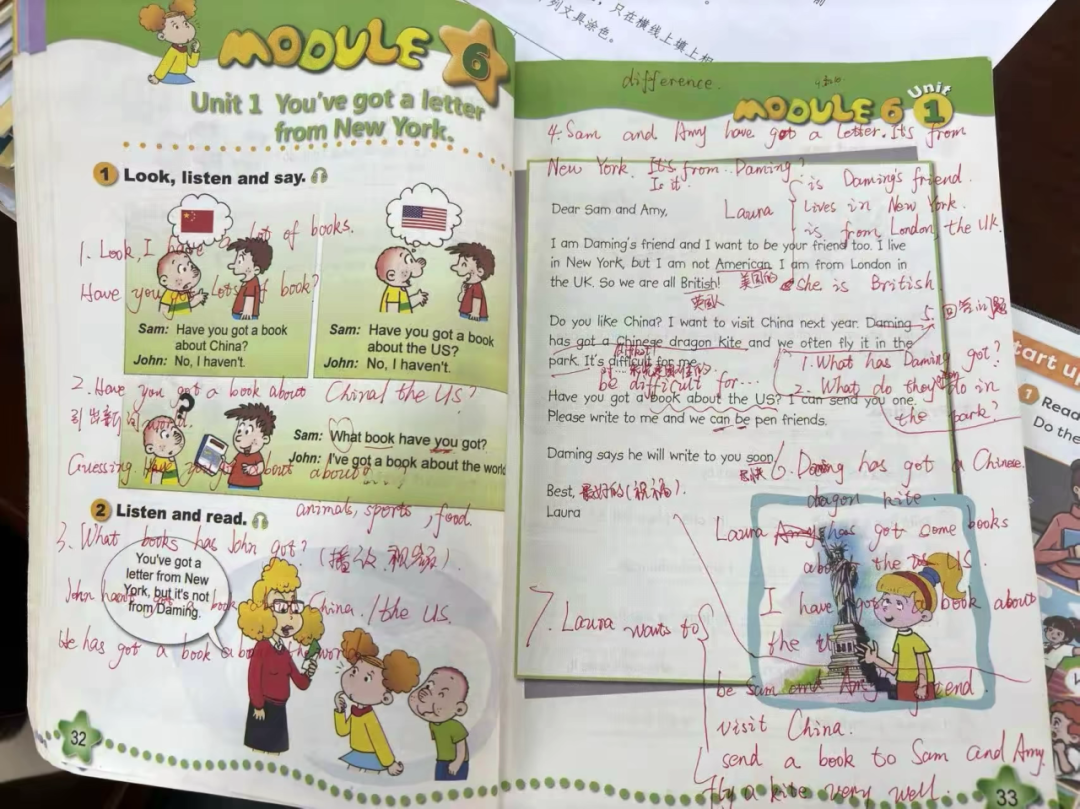 列文具涂色。
，只在横线上填上相
MODULE 6
Unit 1 You've got a letter
from New York.
1 Look, listen and say.
1. Look, I have a lot of books.
Have you got lots of book?
Sam: Have you got a book
about China?
John: No, I haven't.
Sam: Have you got a book
about the US?
John: No, I haven't.
2. Have you got a book about China/ the US?
引出新词 world.
Sam: What book have you got?
John: I've got a book about the world
Guessing. Have you got about
animals, sports, food.
2 Listen and read.
3. What books has John got? (播放视频).
You've got a
letter from New
York, but it's not
from Daming.
John haven't got a book about China. /the US.
He has got a book about the world
32
difference.
MODULE 6 Unit 1
4. Sam and Amy have got a letter. It's from
New York. It's from Daming?
Is it
Laura
is Daming's friend.
lives in New York.
is from London, the UK.
she is British
Dear Sam and Amy,
I am Daming's friend and I want to be your friend too. I live
in New York, but I am not American. I am from London in
the UK. So we are all British!
美国的
英国人
Do you like China? I want to visit China next year. Daming
has got a Chinese dragon kite and we often fly it in the
park. It's difficult for me.
5. 回答问题
1. What has Daming got?
2. What do they do in
the park?
be difficult for...
Have you got a book about the US? I can send you one.
Please write to me and we can be pen friends.
Daming says he will write to you soon.
尽快
Best, 最好的(祝福).
Laura
6. Daming has got a Chinese
dragon kite.
Laura has got some books
about the US.
I have got a book about
the
7. Laura wants to
be Sam and Amy's friend.
visit China.
send a book to Sam and Amy.
fly a kite very well.
33
tart up
1 Read
Do the